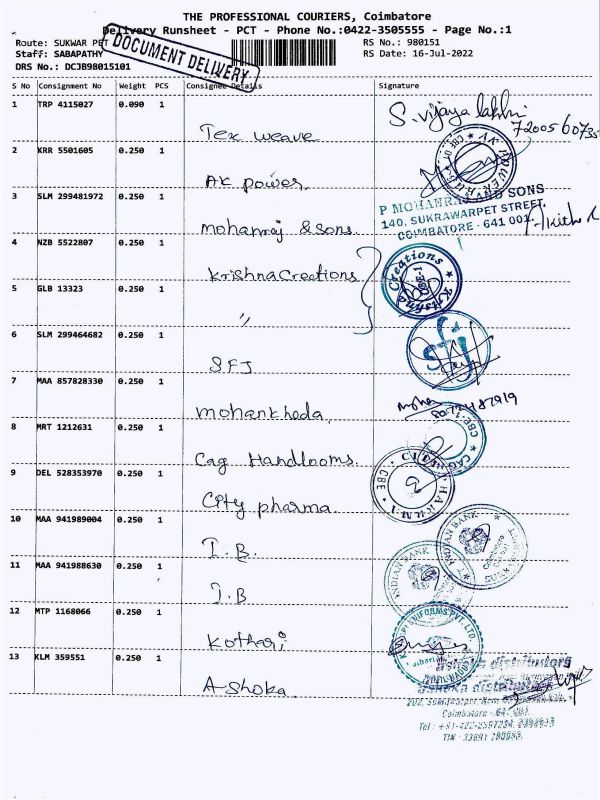 THE PROFESSIONAL COURIERS, Coimbatore
Delivery Runsheet - PCT - Phone No.:0422-3505555 - Page No.:1
Route: SUKWAR PET
DOCUMENT DELIVERY
RS No.: 980151
Staff: SABAPATHY
RS Date: 16-Jul-2022
DRS No.: DCJB98015101
S No Consignment No Weight PCS Consignee Details Signature
1 TRP 4115027 0.090 1
Tex weave
S. vijaya lakhmi
7200560735
2 KRR 5501605 0.250 1
AK power
3 SLM 299481972 0.250 1
mohanraj & sons.
P MOHANRAJ AND SONS
140, SUKRAWARPET STREET,
COIMBATORE - 641 001.
4 NZB 5522807 0.250 1
Krishna Creations
Krishna Creations
CBE-1
5 GLB 13323 0.250 1
〃
6 SLM 299464682 0.250 1
SFJ
7 MAA 857828330 0.250 1
mohankheda
8 MRT 1212631 0.250 1
Cag Handlooms
CAG
CBE-1
9 DEL 528353970 0.250 1
City pharma.
CITY PHARMA
CBE
10 MAA 941989004 0.250 1
I.B.
INDIAN BANK
11 MAA 941988630 0.250 1
I.B
INDIAN BANK
12 MTP 1168066 0.250 1
Kothari
UNIFORMS PVT. LTD.
13 KLM 359551 0.250 1
A-Shoka.
ashoka distributors
ashoka distributors
Coimbatore - 641 001.